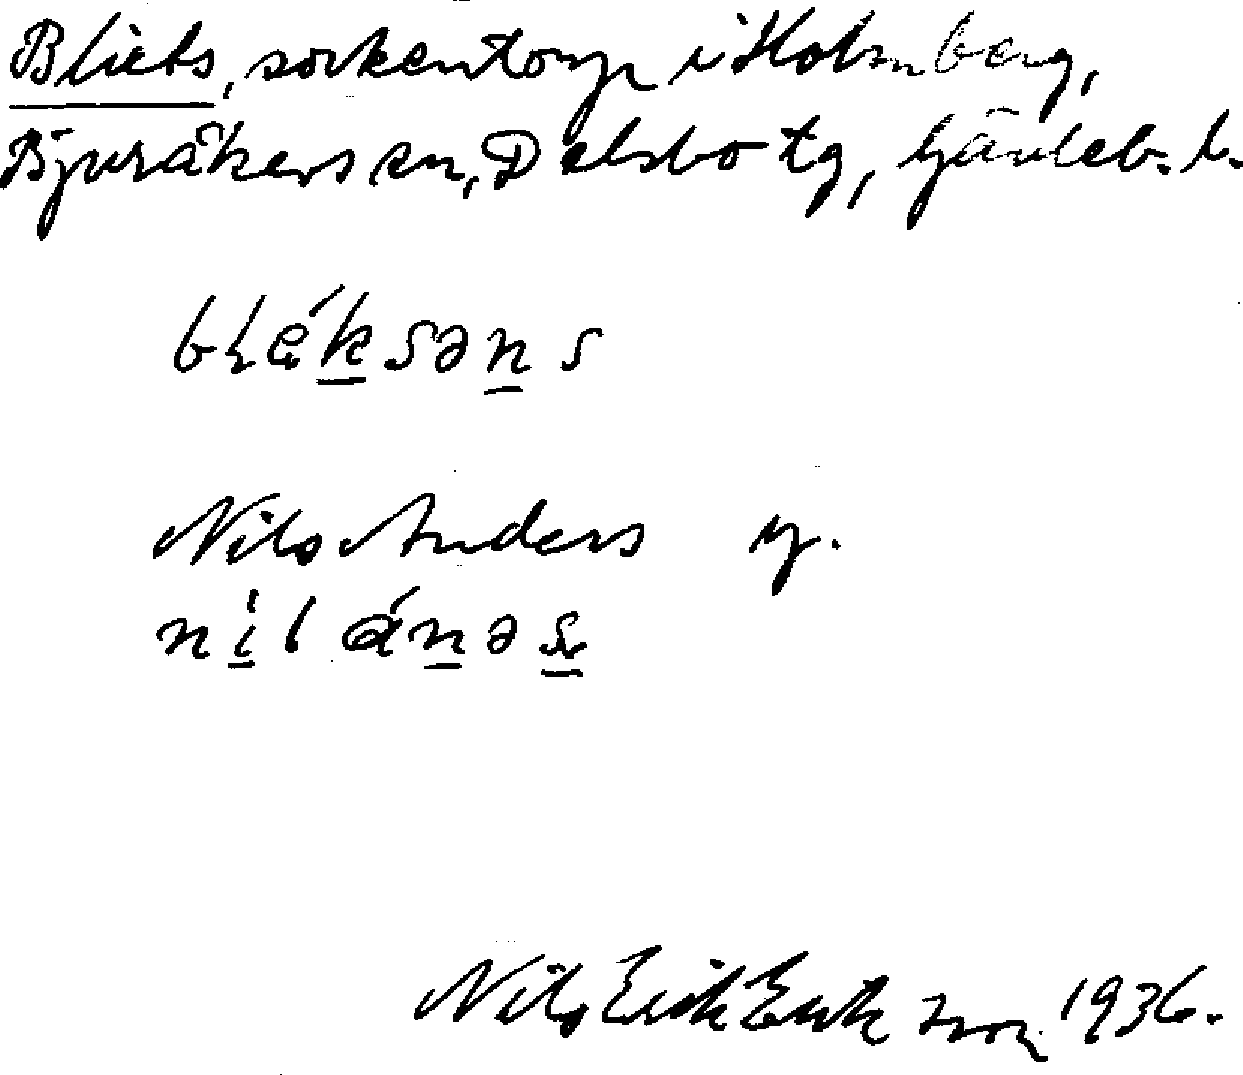 Bliebs, sockentorp i Holmberg,
Bjuråkers sn, Delsbo tg, Gävleb. l.
bléksəns
Nils Anders y.
nil ánəs
Nils Erik Eurk nov. 1936.